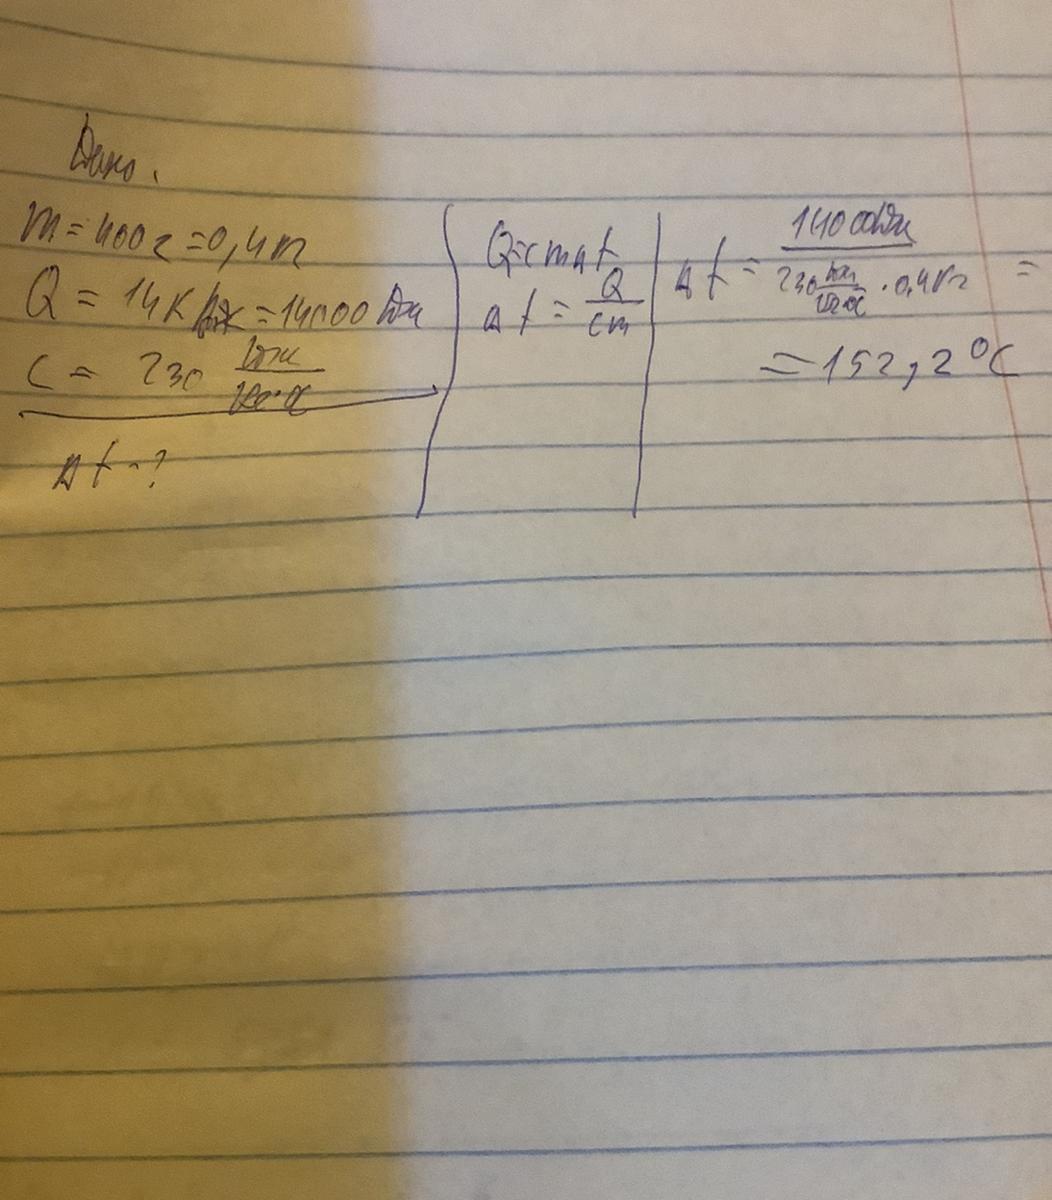 Дано.
m = 400г = 0,4кг
Q = 14кДж = 14000 Дж
c = 230 Дж/кг·°C
Δt - ?
Q=cmΔt
Δt = Q/cm
Δt = 14000Дж/230 Дж/кг·°C · 0,4кг =
= 152,2 °C